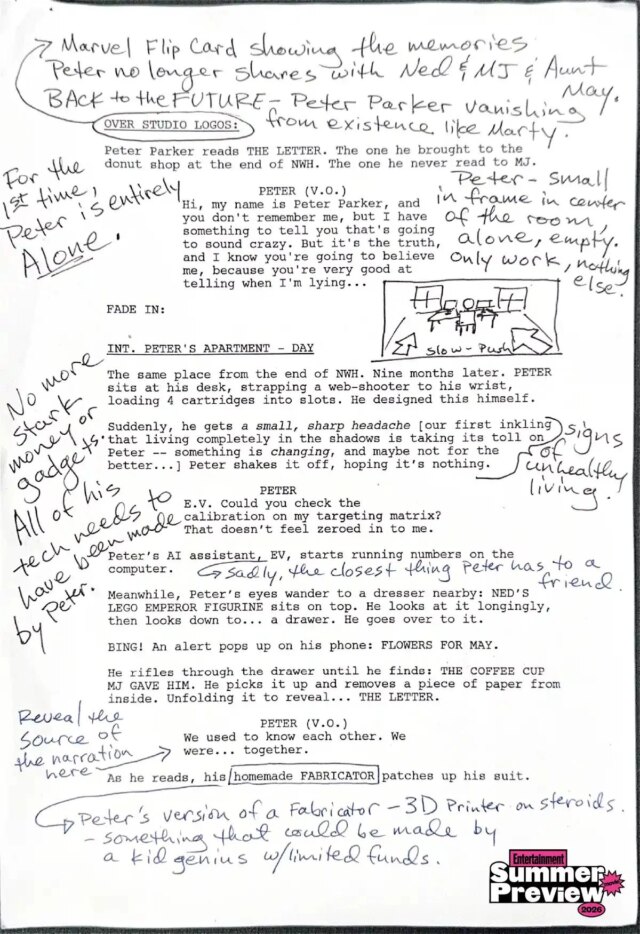 Marvel Flip Card showing the memories
Peter no longer shares with Ned & MJ & Aunt
May.
BACK to the FUTURE - Peter Parker vanishing
from existence like Marty.
OVER STUDIO LOGOS:
Peter Parker reads THE LETTER. The one he brought to the
donut shop at the end of NWH. The one he never read to MJ.
For the
1st time,
Peter is entirely
Alone.
PETER (V.O.)
Hi, my name is Peter Parker, and
you don't remember me, but I have
something to tell you that's going
to sound crazy. But it's the truth,
and I know you're going to believe
me, because you're very good at
telling when I'm lying...
Peter - small
in frame in center
of the room,
alone, empty.
Only work, nothing
else.
FADE IN:
slow-push
INT. PETER'S APARTMENT - DAY
The same place from the end of NWH. Nine months later. PETER
sits at his desk, strapping a web-shooter to his wrist,
loading 4 cartridges into slots. He designed this himself.
No more
Stark
money or
gadgets.
All of his
tech needs to
have been made
by Peter.
Suddenly, he gets a small, sharp headache [our first inkling
that living completely in the shadows is taking its toll on
Peter -- something is changing, and maybe not for the
better...] Peter shakes it off, hoping it's nothing.
signs
of
unhealthy
living.
PETER
E.V. Could you check the
calibration on my targeting matrix?
That doesn't feel zeroed in to me.
Peter's AI assistant, EV, starts running numbers on the
computer.
Sadly, the closest thing Peter has to a
friend.
Meanwhile, Peter's eyes wander to a dresser nearby: NED'S
LEGO EMPEROR FIGURINE sits on top. He looks at it longingly,
then looks down to... a drawer. He goes over to it.
BING! An alert pops up on his phone: FLOWERS FOR MAY.
He rifles through the drawer until he finds: THE COFFEE CUP
MJ GAVE HIM. He picks it up and removes a piece of paper from
inside. Unfolding it to reveal... THE LETTER.
Reveal the
source of
the narration
here
PETER (V.O.)
We used to know each other. We
were... together.
As he reads, his homemade FABRICATOR patches up his suit.
Peter's version of a Fabricator - 3D Printer on steroids.
- something that could be made by
a kid genius w/limited funds.
Entertainment
Summer
Preview
2026